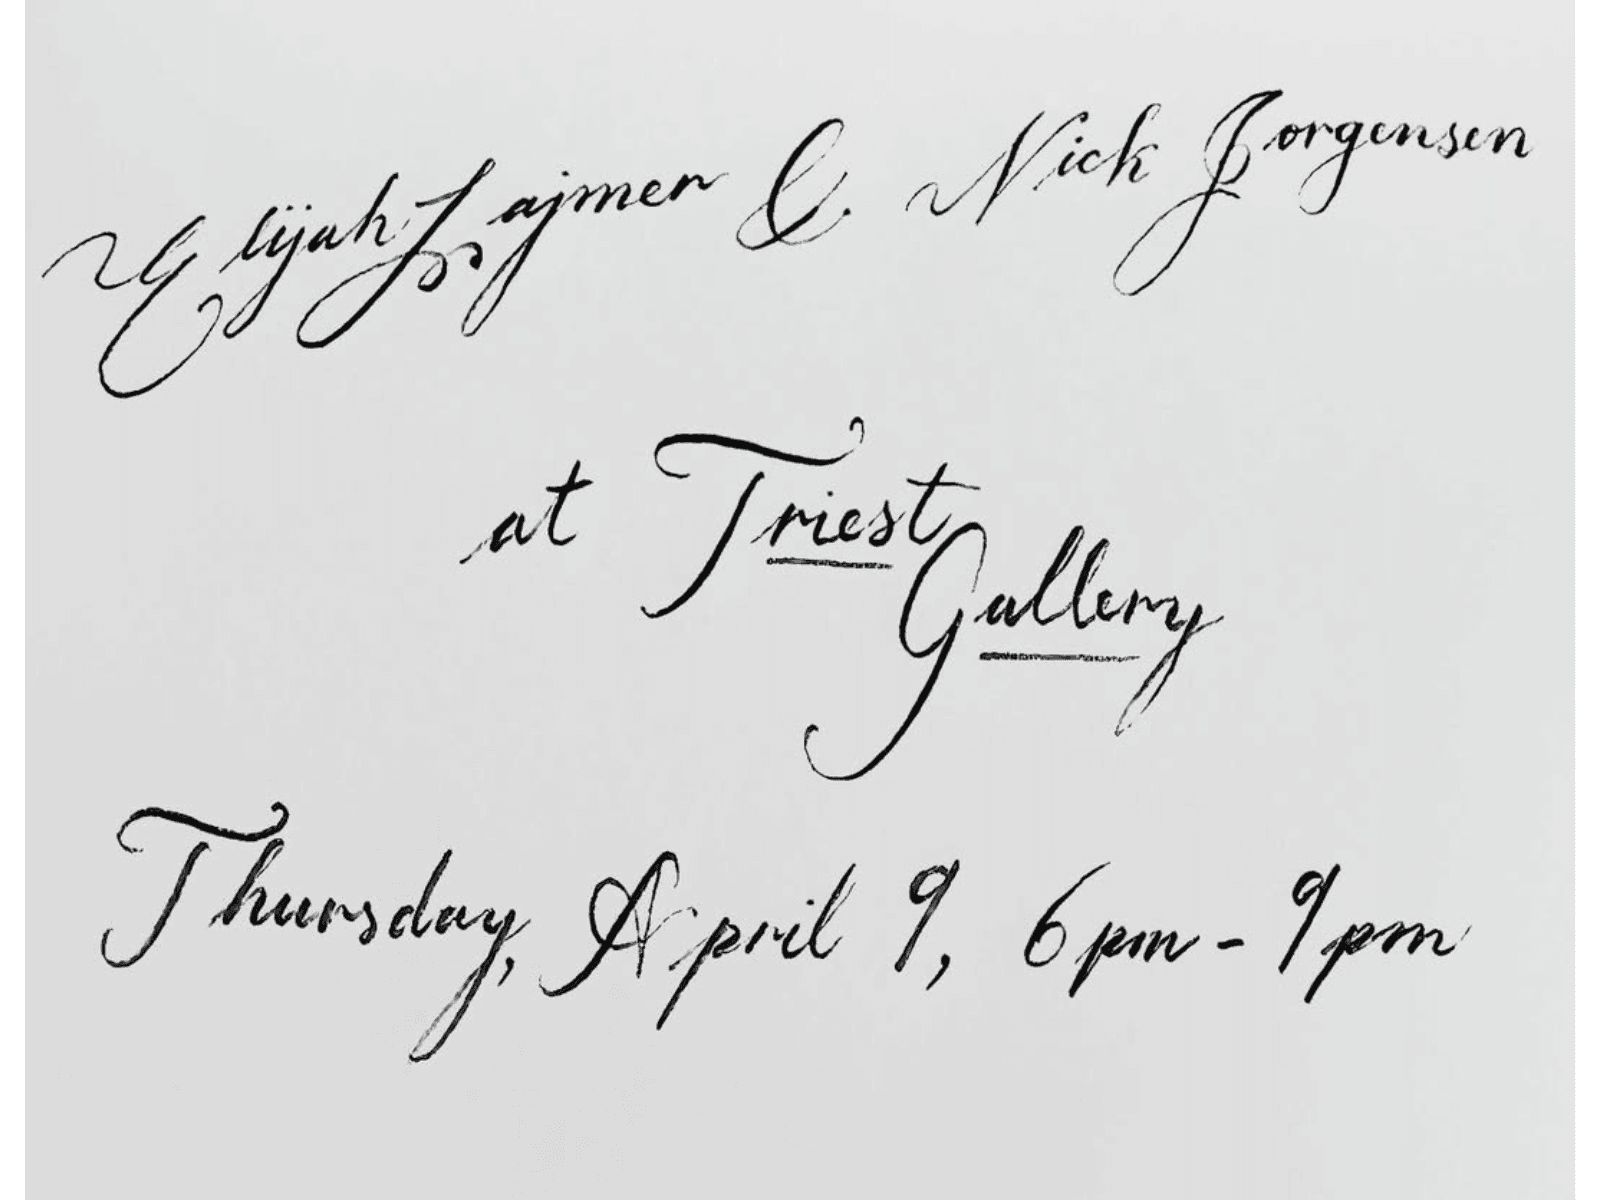 Elijah Lajmer & Nick Jorgensen
at Triest
Gallery
Thursday, April 9, 6pm - 9pm